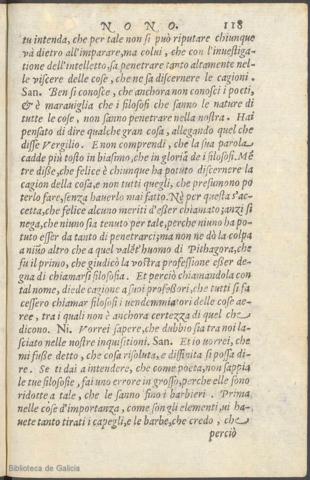 NONO. 118
tu intenda, che per tale non si può riputare chiunque
và dietro all'imparare, ma colui, che con l'inuestiga-
tione dell'intelletto, sa penetrare tanto altamente nel-
le viscere delle cose, che ne sa discernere le cagioni.
San. Ben si conosce, che anchora non conosci i poeti,
& è marauiglia che i filosofi che sanno le nature di
tutte le cose, non sanno penetrare nella nostra. Hai
pensato di dire qualche gran cosa, allegando quel che
disse Vergilio. E non comprendi, che la sua parola
cadde più tosto in biasimo, che in gloria de i filosofi. Mē
tre disse, che felice è chiunque ha potuto discernere la
cagion della cosa, e non tutti quegli, che presumono po
terlo fare, senza hauerlo mai fatto. Nè per questa s'ac-
cetta, che felice alcuno meriti d'esser chiamato; anzi si
nega, che niuno sia tenuto per tale, perche niuno ha po-
tuto esser da tanto di penetrarci; ma non ne dò la colpa
a niuno altro che a quel valēt' huomo di Pithagora, che
fu il primo, che giudicò la vostra professione esser de-
gna di chiamarsi filosofia. Et perciò chiamandola con
tal nome, diede cagione a suoi professori, che tutti si fa
cessero chiamar filosofi i uendemmiatori delle cose ae-
ree, tra i quali non è anchora certezza di quel che
dicono. Ni. Vorrei sapere, che dubbio sia tra noi la-
sciato nelle nostre inquisitioni. San. Et io uorrei, che
mi fusse detto, che cosa risoluta, e diffinita si possa di-
re. Se ti dai a intendere, che come poeta, non sappia
le tue filosofie, fai uno errore in grosso, perche elle sono
ridotte a tale, che le sanno fino i barbieri. Prima
nelle cose d'importanza, come son gli elementi, ui ha-
uete tanto tirati i capegli, e le barbe, che credo, che
perciò
Biblioteca de Galicia